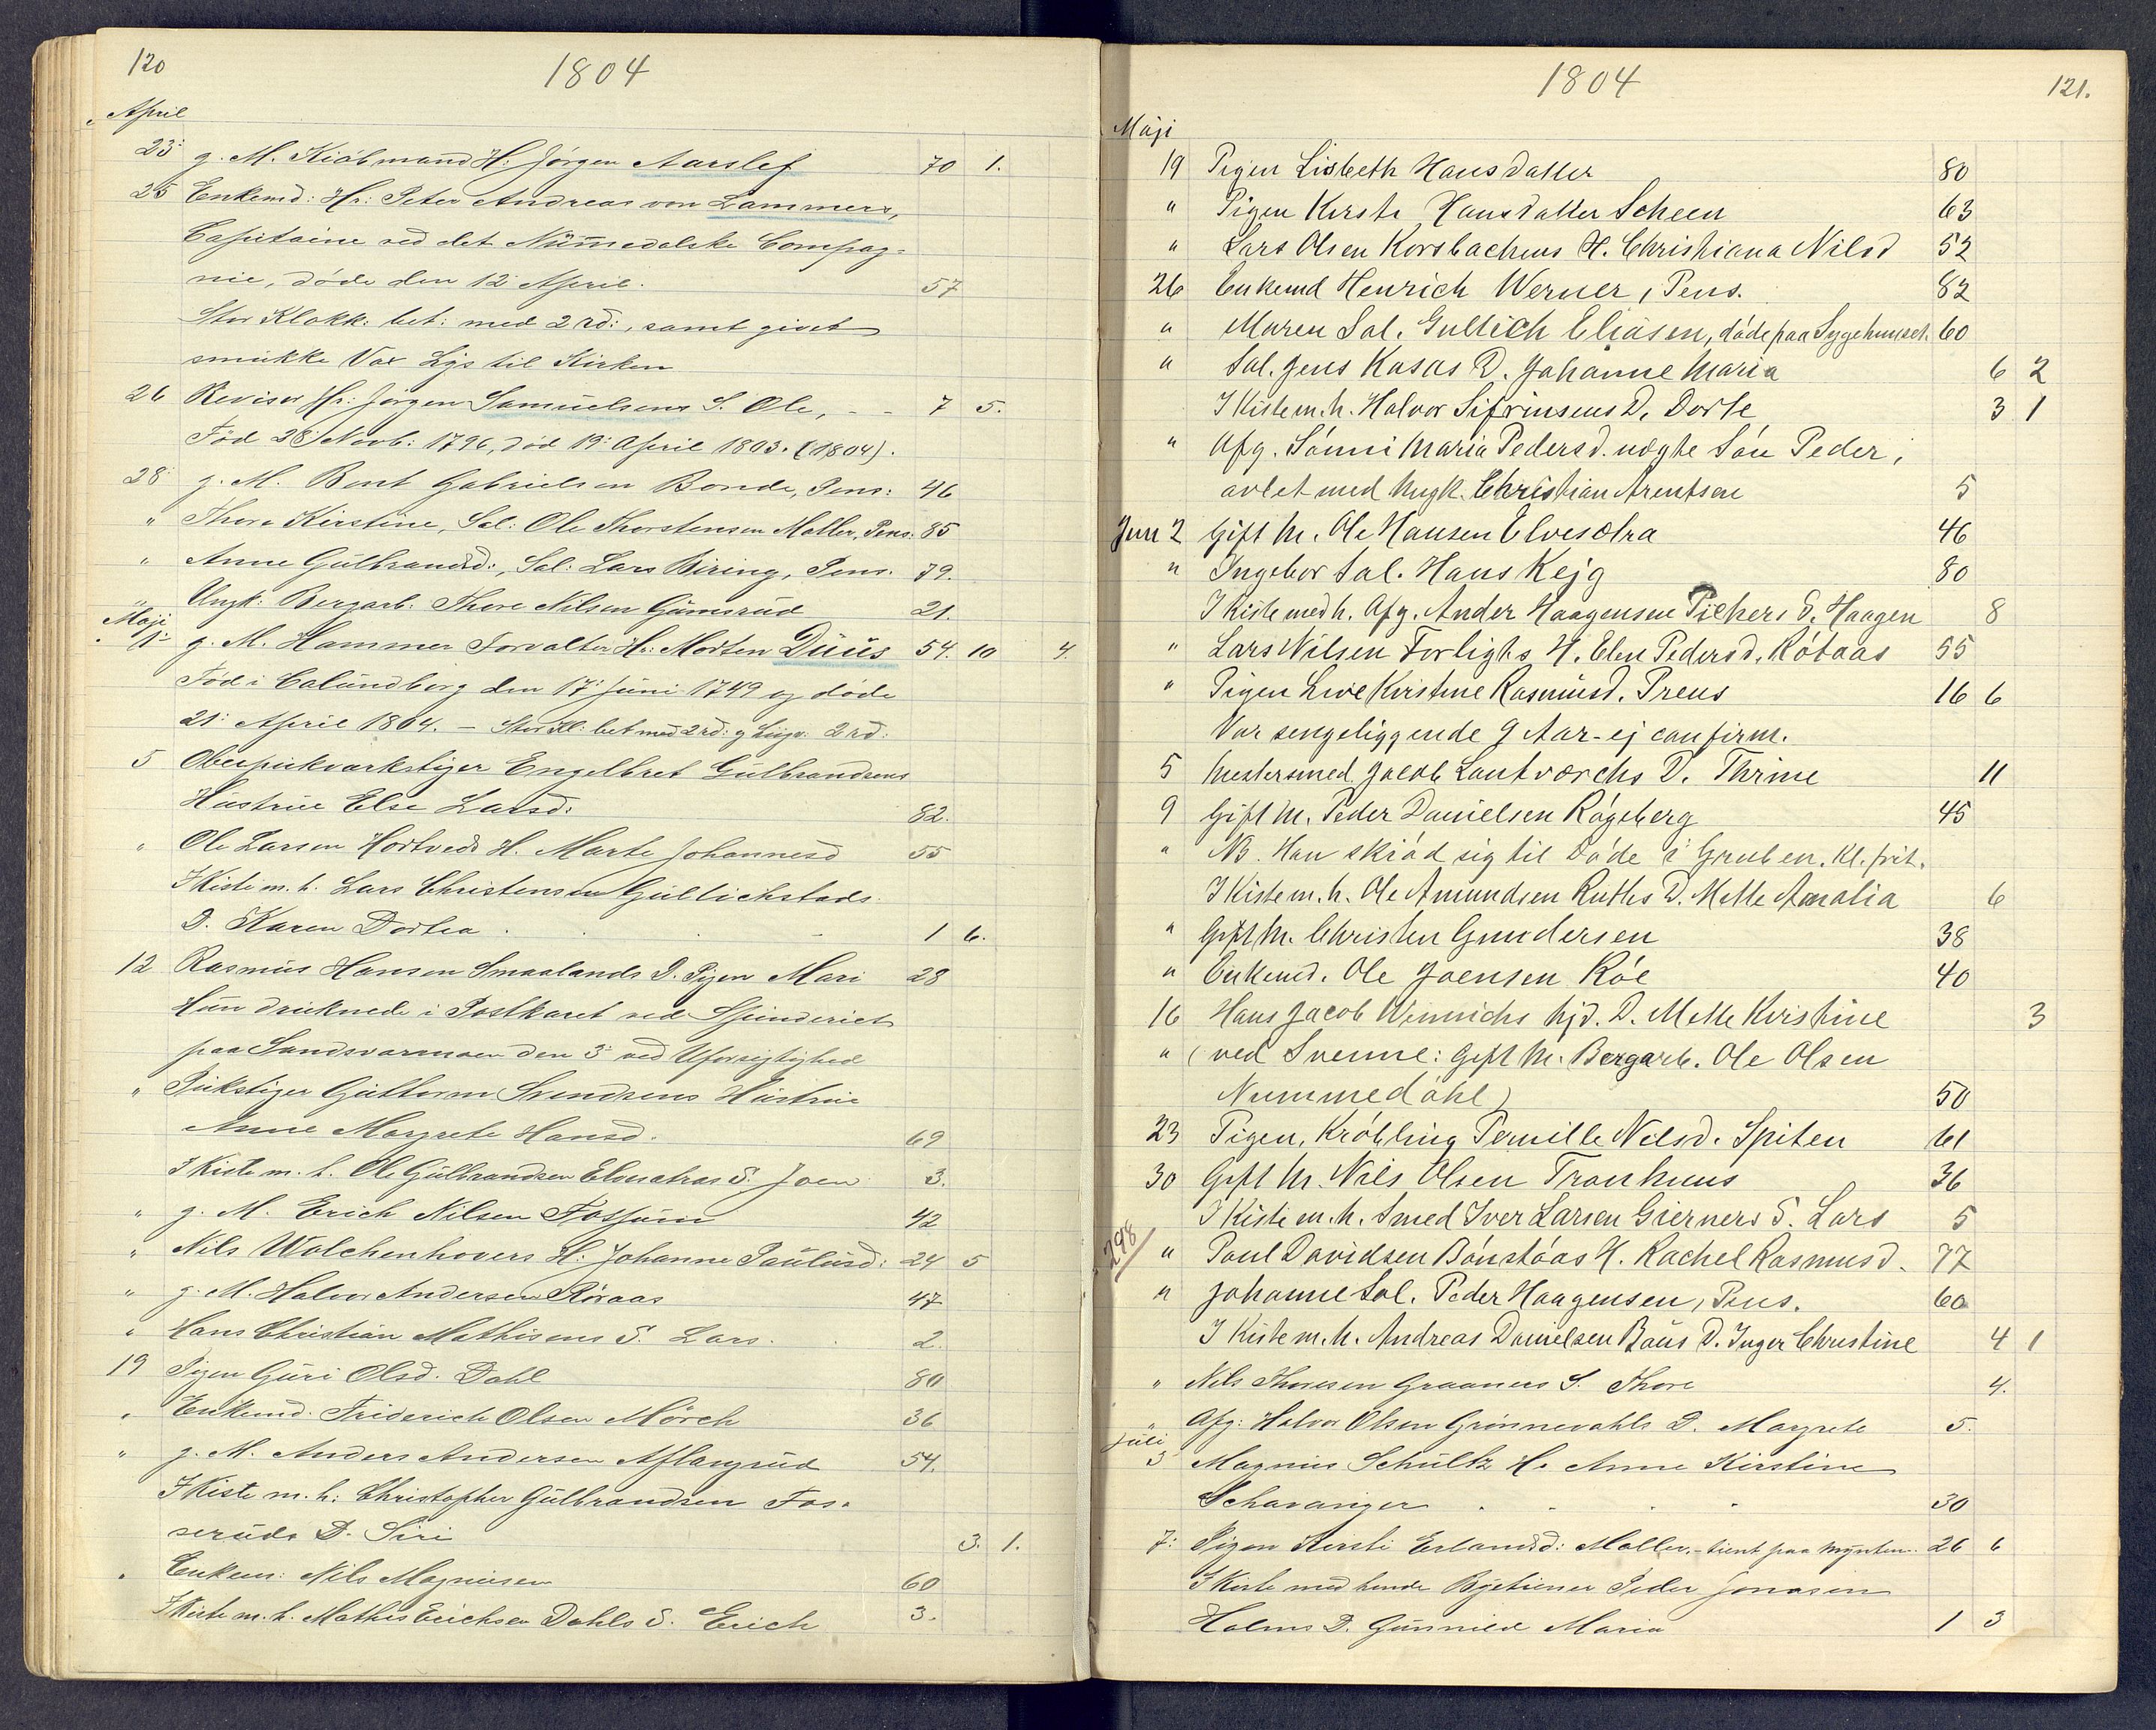 120
1804
April
23: g. M. Kiöbmand H: Jörgen Aarslef 70 1.
25 Enkemd: Hr: Peter Andreas von Lammers,
Capitaine ved det Nummedalske Compag-
nie, döde den 12 April. 57
Stor Klokk: bet: med 2 rd:, samt givet
smukke Vox Lys til Kirken
26 Revisor Hr: Jörgen Samuelsens S. Ole, - - 7 5.
Föd 28 Novb: 1796, död 19: April 1803. (1804).
28 g. M. Bent Gabrielsen Bonde, Pens: 46
" Thore Kirstine, Sal: Ole Thorstensen Moller, Pens: 85
" Anne Gulbrandsd:, Sal: Lars Biring, Pens. 79.
" Ungk: Bergarb: Thore Nilsen Gamsrud 21.
Maji
1: g. M. Hammer Forvalter Hr: Morten Duus 54. 10 4.
Föd i Calundborg den 17: Juni 1749 og döde
21: April 1804. - Stor Kl: bet med 2 rd: g 2 rd:
5 Oberpukvarkstiger Engelbret Gulbrandsens
Hustrue Else Larsd: 82.
" Ole Larsen Hortveds H. Marte Johannesd 55
I Kiste m. h. Lars Christensen Gullichstads
D. Karen Dortea 1 6.
12 Rasmus Hansen Smaalands D. Pigen Mari 28
Hun druknede i Postkaret ved
paa Sandsvarmoen den 3: ved Uforsigtighed
" Pukstiger Guttorm Svendsens Hustrue
Anne Margrete Hansd. 69
I Kiste m. h. Ole Gulbrandsen Elvesætras S. Joen 3.
" g. M. Erich Nilsen Fossum 42
" Nils Wolchenhovers H: Johanne Paulusd: 24 5
" g. M. Halvor Andersen Röraas 47
" Hans Christian Mathisens S. Lars. 2.
19 Pigen Guri Olsd. Dahl 80
" Enkemd. Friderich Olsen Mörch 36
" g. M. Anders Andersen Aslangrud 54.
I Kiste m. h: Christopher Gulbrandsen Fos-
seruds D. Siri 3. 1.
" Enkem: Nils Magnusen 60
I Kiste m. h. Mathis Erichsen Dahls S. Erich 3.
1804
121.
Maji
19 Pigen Lisbeth Hansdatter 80
" Pigen Kirsti Hansdatter Scheen 63
" Lars Olsen Korsbachens H. Christiana Nilsd 52
26 Enkemd Henrich Werner, Pens. 82
" Maren Sal. Gullich Eliasen, döde paa Sygehuuset. 60
" Sal. Jens Kasas D. Johanne Maria 6 2
I Kiste m. h. Halvor Sifrinsens D. Dorte 3 1
" Afg. Sönni Maria Pedersd. uægte Sön Peder,
avlet med Ungk. Christian Arentsen 5
Jun 2 Gift M. Ole Hansen Elvesætra 46
" Ingebor Sal. Hans Kejg 80
I Kiste med h. Afg. Ander Haagensen Pichers S. Haagen 8
" Lars Nilsen Forligts H. Elen Pedersd. Röbaas 55
" Pigen Live Kirstine Rasmusd. Preus 16 6
Var sengeliggende 9 Aar - ej confirm.
5 Mestersmed Jacob Lautværchs D. Thrine 11
9 Gift M. Peder Danielsen Rögeberg 45
" NB. Han skiöd sig til Döde i Gruben. Kl. frit.
I Kiste m. h. Ole Amundsen Ruths D. Mette Amalia 6
" Gift M. Christen Gundersen 38
" Enkemd. Ole Joensen Röe 40
16 Hans Jacob Winnichs hjd. D. Mette Kirstine 3
" (ved Svenne: Gift M. Bergarb. Ole Olsen
Nummedahl) 50
23 Pigen, Kröbling Pernille Nilsd. Spiten 61
30 Gift M. Nils Olsen Tronhuus 36
I Kiste m. h. Smed Iver Larsen Gierners S. Lars 5
298
" Poul Davidsen Bönstöas H. Rachel Rasmusd. 77
" Johanne Sal. Peder Haagensen, Pens. 60
I Kiste m. h. Andreas Danielsen Baus D. Inger Christine 4 1
" Nils Thoresen Graaners S. Thore 4.
" Afg: Halvor Olsen Grönnevahls D. Margrete 5.
Juli
3 Magnus Schultz H. Anne Kirstine
Schavanger 30
7: Pigen Kirsti Erlandsd: Moller. - tient paa Mynten. 26 6
I Kiste med hende Bytiener Peder Jonasen
Holms D. Gunnild Maria 1 3